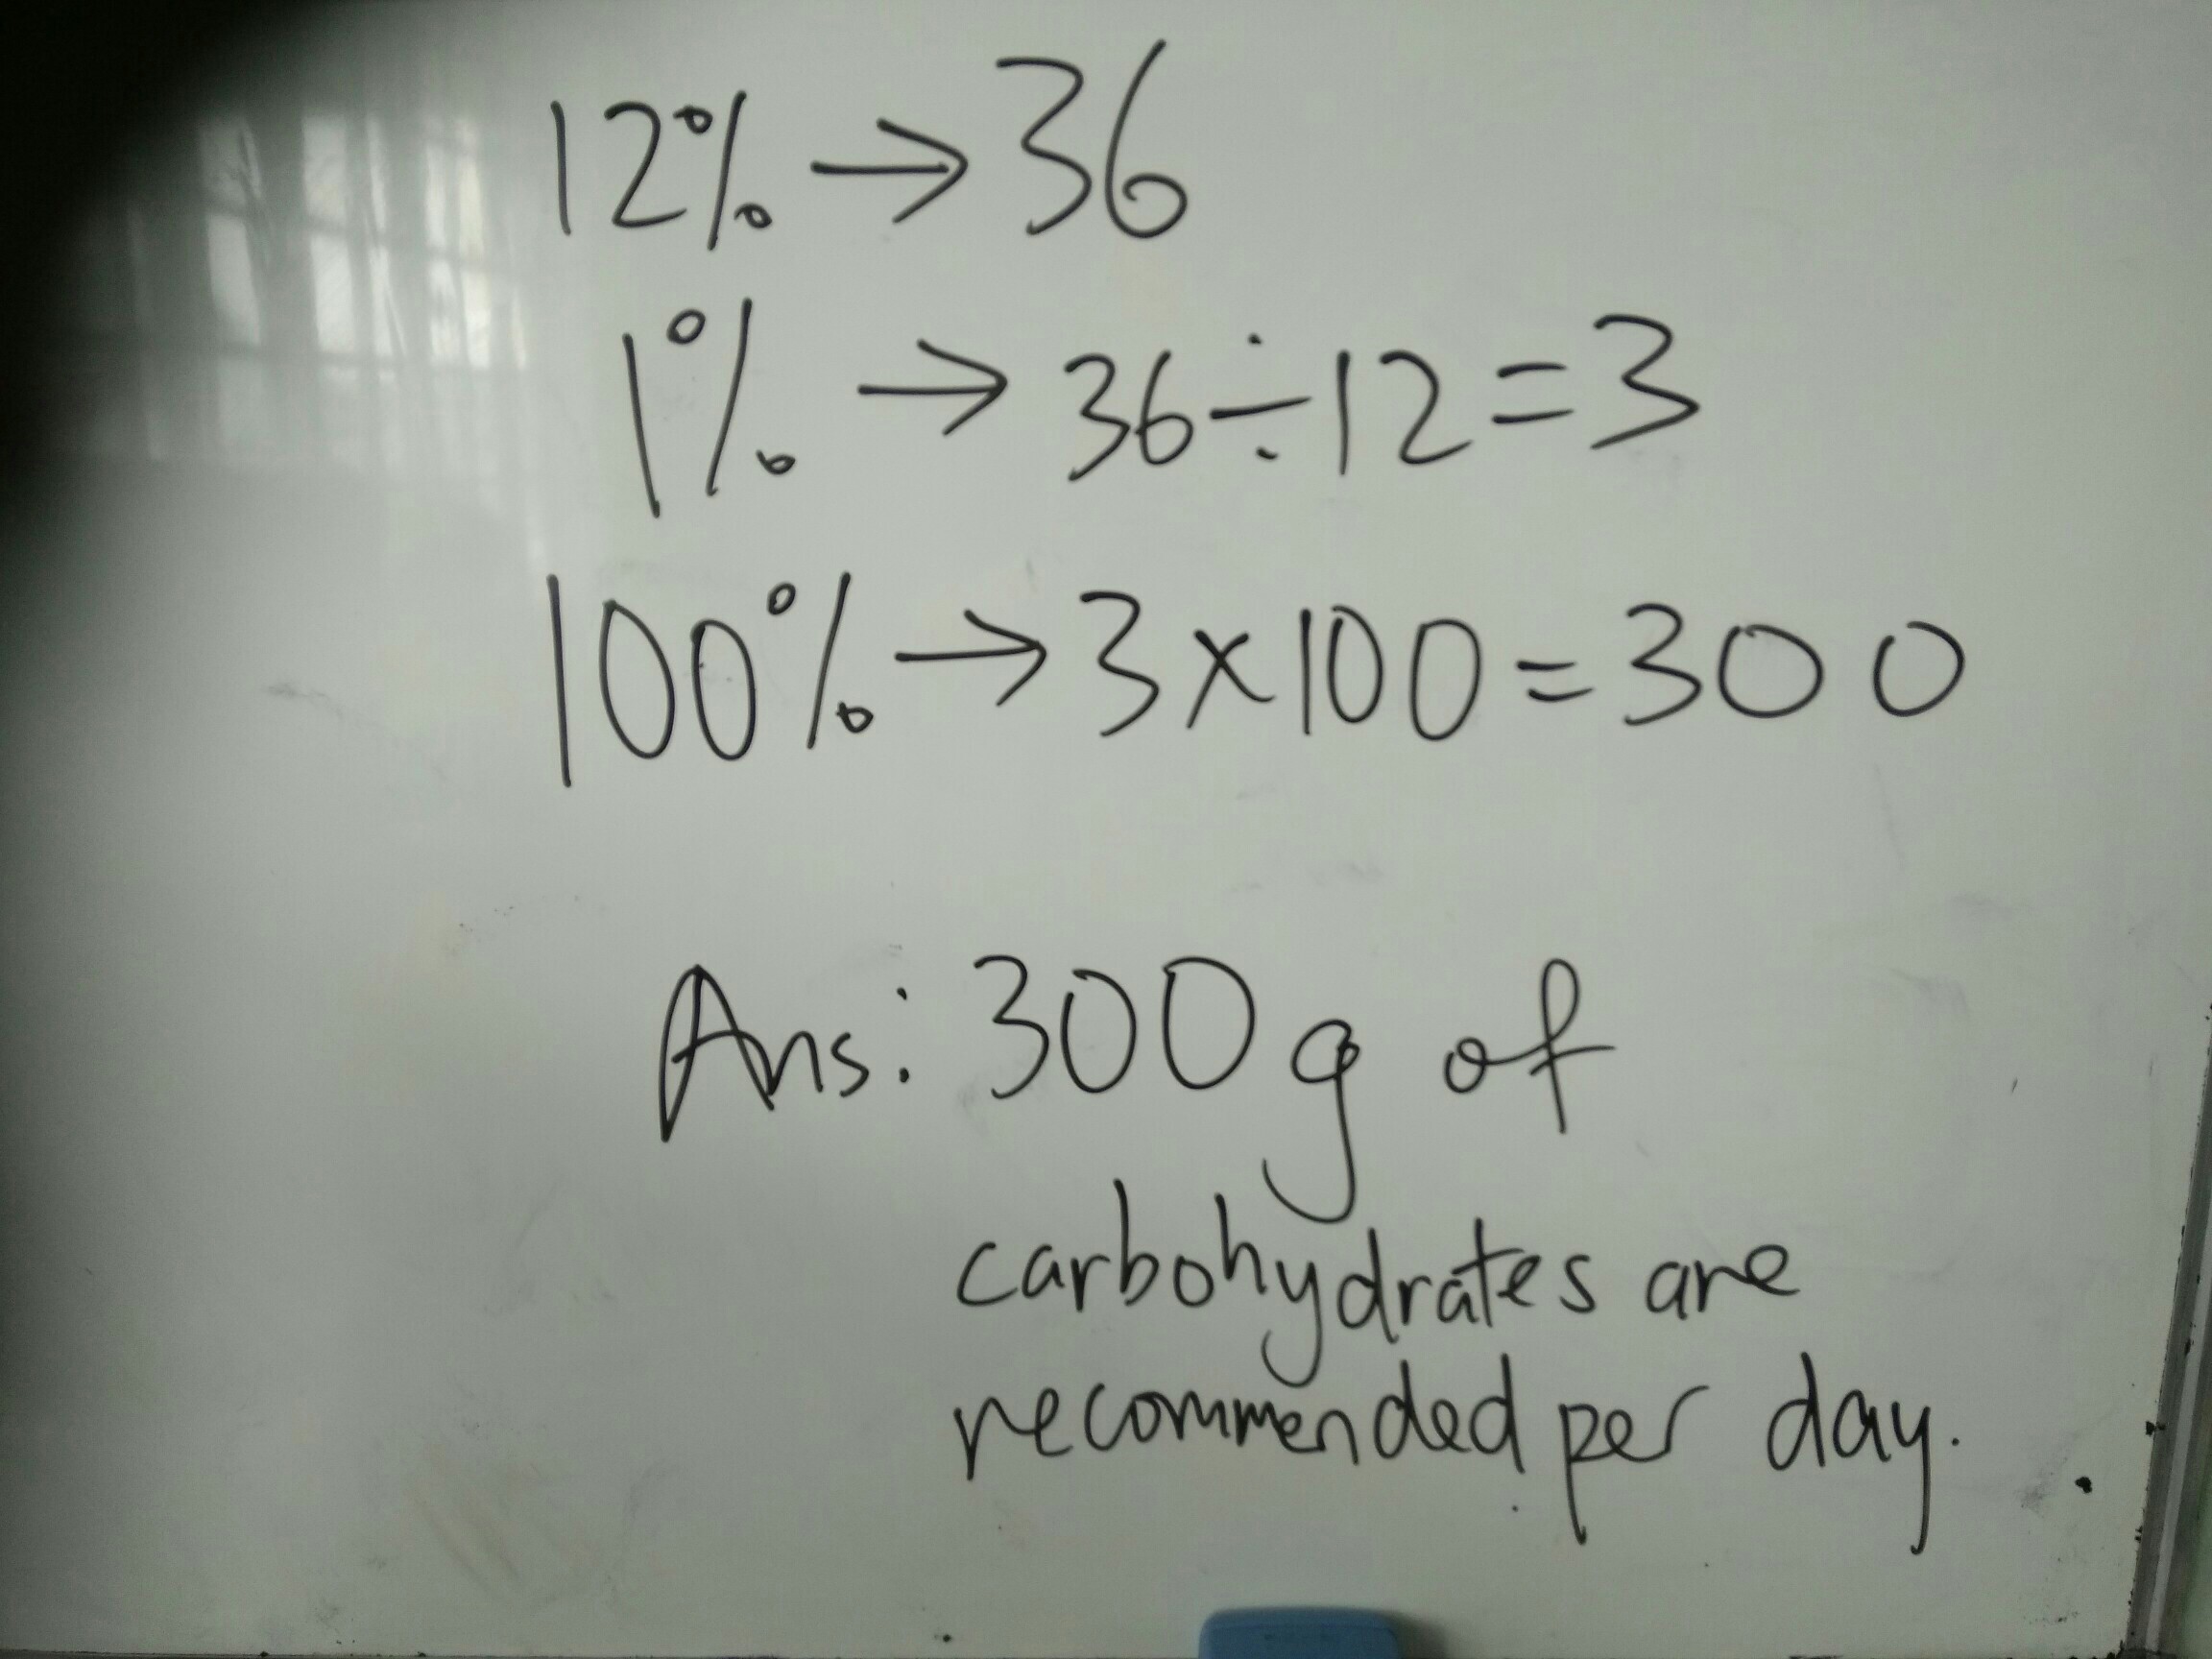 12% → 36
1% → 36 ÷ 12 = 3
100% → 3 × 100 = 300
Ans: 300 g of
carbohydrates are
recommended per day.